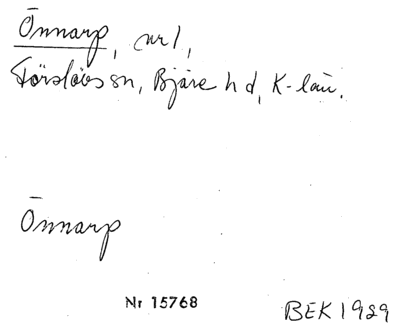 Önnarp, nr 1,
Förslövs sn, Bjäre hd, K-län.
Önnarp
Nr 15768
BEK 1929